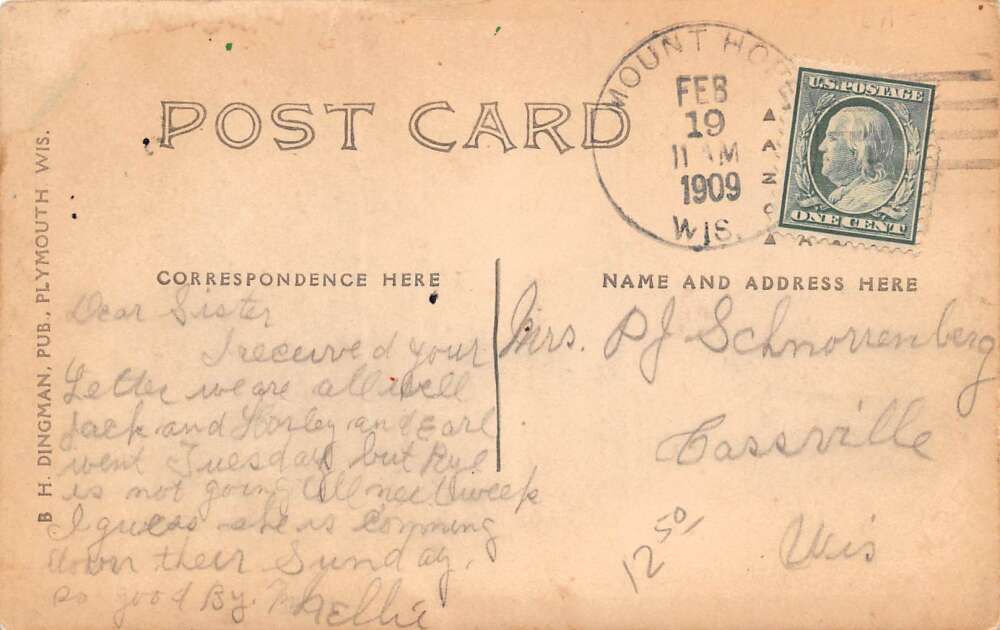 POST CARD
MOUNT HO
FEB
19
11 AM
1909
WIS.
U.S. POSTAGE
ONE CENT
B H. DINGMAN, PUB., PLYMOUTH WIS.
CORRESPONDENCE HERE
Dear Sister
I received your
Letter we are all well
Jack and Harley and Earl
went Tuesday but
is not going till next week
I guess she is comming
down their Sunday.
so good By. Nellie
NAME AND ADDRESS HERE
Mrs. PJ Schnorrenberg
Cassville
Wis
12 50/